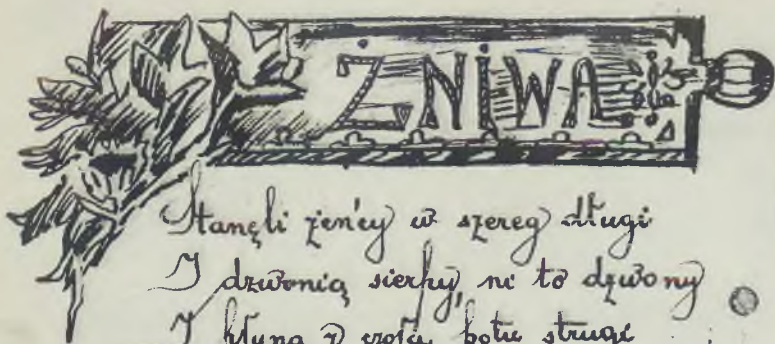 ŻNIWA
Stanęli żeńcy w szereg długi
I dzwonią sierpy, ni to dzwony
I płyną z czoła potu strugi